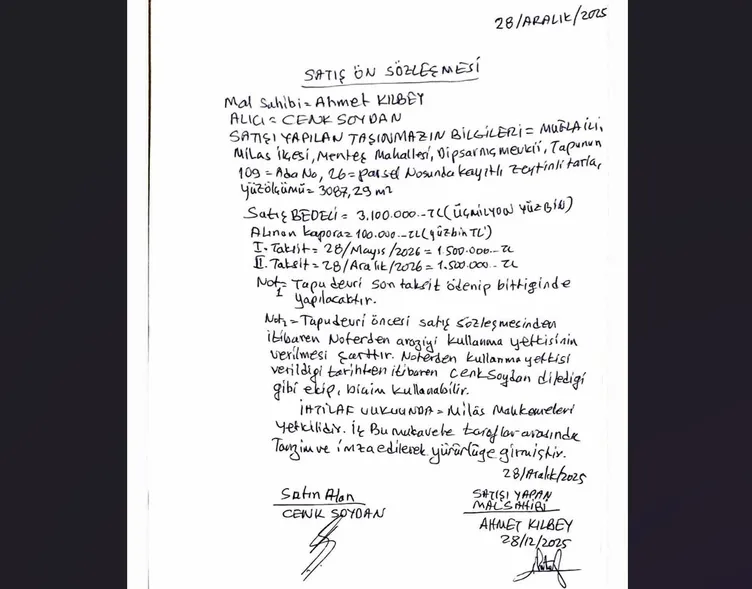 28/ARALIK/2025
SATIŞ ÖN SÖZLEŞMESİ
Mal Sahibi = Ahmet KILBEY
ALICI = CENK SOYDAN
SATIŞI YAPILAN TAŞINMAZIN BİLGİLERİ = MUĞLA İLİ,
Milas ilçesi, Menteş Mahallesi, Dipsarnıç mevkii, Tapunun
109 = Ada No, 26 = parsel Nosunda kayıtlı zeytinli tarla,
yüzölçümü = 3087,29 m²
Satış BEDELİ = 3.100.000.-TL (ÜÇMİLYON YÜZBİN)
Alınan kapora = 100.000.-TL (yüzbin TL)
I. Taksit = 28/Mayıs/2026 = 1.500.000.-TL
II. Taksit = 28/Aralık/2026 = 1.500.000.-TL
Not1 = Tapu devri son taksit ödenip bittiğinde
yapılacaktır.
Not2 = Tapu devri öncesi satış sözleşmesinden
itibaren Noterden araziyi kullanma yetkisinin
verilmesi şarttır. Noterden kullanma yetkisi
verildiği tarihten itibaren Cenk Soydan dilediği
gibi ekip, biçip kullanabilir.
İHTİLAF VUKUUNDA = Milas Mahkemeleri
yetkilidir. İş Bu mukavele taraflar arasında
Tanzim ve imza edilerek yürürlüğe girmiştir.
28/Aralık/2025
Satın Alan
CENK SOYDAN
SATIŞI YAPAN
MAL SAHİBİ
AHMET KILBEY
28/12/2025